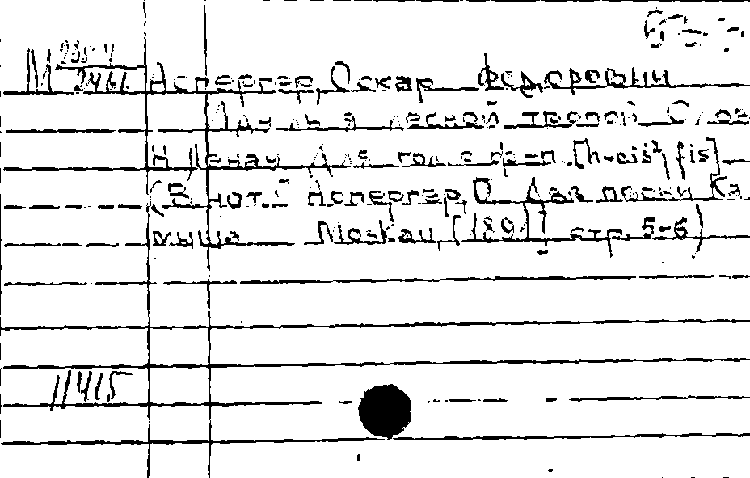 М 235 4/2461 Аспергер, Оскар Федорович
Иду ль я лесной тропой Слов
Н Ленау Для гол. с ф-п. [h-cis², fis]
(В нот.: Аспергер, О. Два песни Ка
мыша Москаu, [189 ] стр. 5-6)
11415